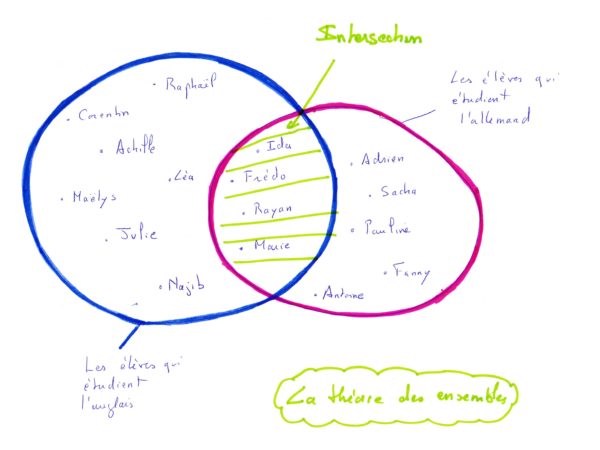 Intersection
Raphaël
Corentin
Achille
Léa
Maëlys
Julie
Najib
Ida
Frédo
Rayan
Marie
Adrien
Sacha
Pauline
Fanny
Antoine
Les élèves qui
étudient
l'allemand
Les élèves qui
étudient
l'anglais
La théorie des ensembles